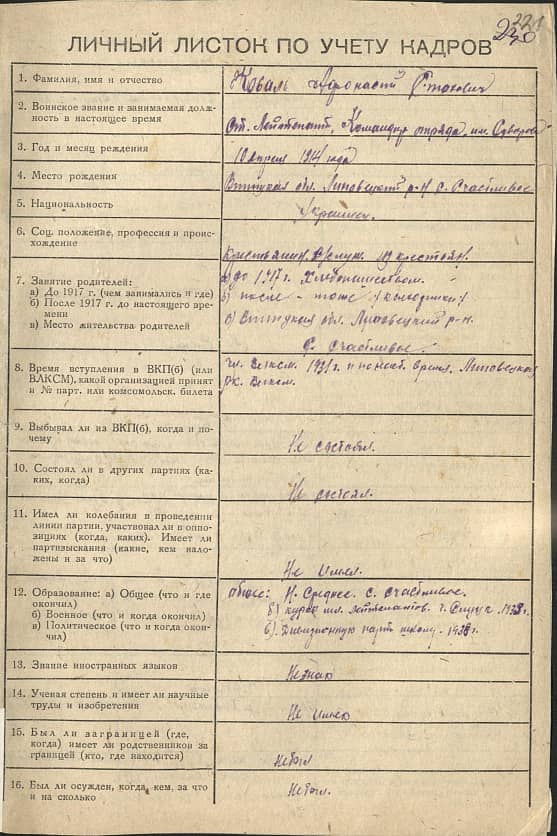 221
230
ЛИЧНЫЙ ЛИСТОК ПО УЧЕТУ КАДРОВ
1. Фамилия, имя и отчество
Коваль Афонасий
2. Воинское звание и занимаемая долж-
ность в настоящее время
Ст. Лейтенант, Командир отряда им. Суворова
3. Год и месяц реждения
10 апреля 1914 года
4. Место рождения
обл. Липовецкий р-н с. Счастливое
5. Национальность
Украинец.
6. Соц. положение, профессия и проис-
хождение
Крестьянин. Служ. из крестьян.
7. Занятие родителей:
а) До 1917 г. (чем занимались и где)
б) После 1917 г. до настоящего вре-
мени
в) Место жительства родителей
а) до 1917 г. Хлебопашеством.
б) после - тоже /колхозники/
в) обл. Липовецкий р-н.
с. Счастливое.
8. Время вступления в ВКП(б) (или
ВЛКСМ), какой организацией принят
и № парт. или комсомольск. билета
чл. ВЛКСМ. 1931 г. и по наст. время. Липовецким
РК. ВЛКСМ.
9. Выбывал ли из ВКП(б), когда и по-
чему
Не состоял.
10. Состоял ли в других партиях (ка-
ких, когда)
Не состоял.
11. Имел ли колебания в проведении
линии партии, участвовал ли в оппо-
зициях (когда, каких). Имеет ли
партвзыскания (какие, кем наложе-
жены и за что)
Не имел.
12. Образование: а) Общее (что и где
окончил)
б) Военное (что и когда окончил)
в) Политическое (что и когда окон-
чил)
общее: Н. Среднее. с. Счастливое.
б) курсы мл. лейтенантов. г. Слуцк. 1938 г.
в) Дивизионную парт школу. 1938 г.
13. Знание иностранных языков
Не знаю
14. Ученая степень и имеет ли научные
труды и изобретения
Не имею
15. Был ли заграницей (где,
когда) имеет ли родственников за
границей (кто, где находится)
Не был
16. Был ли осужден, когда, кем, за что
и на сколько
Не был.